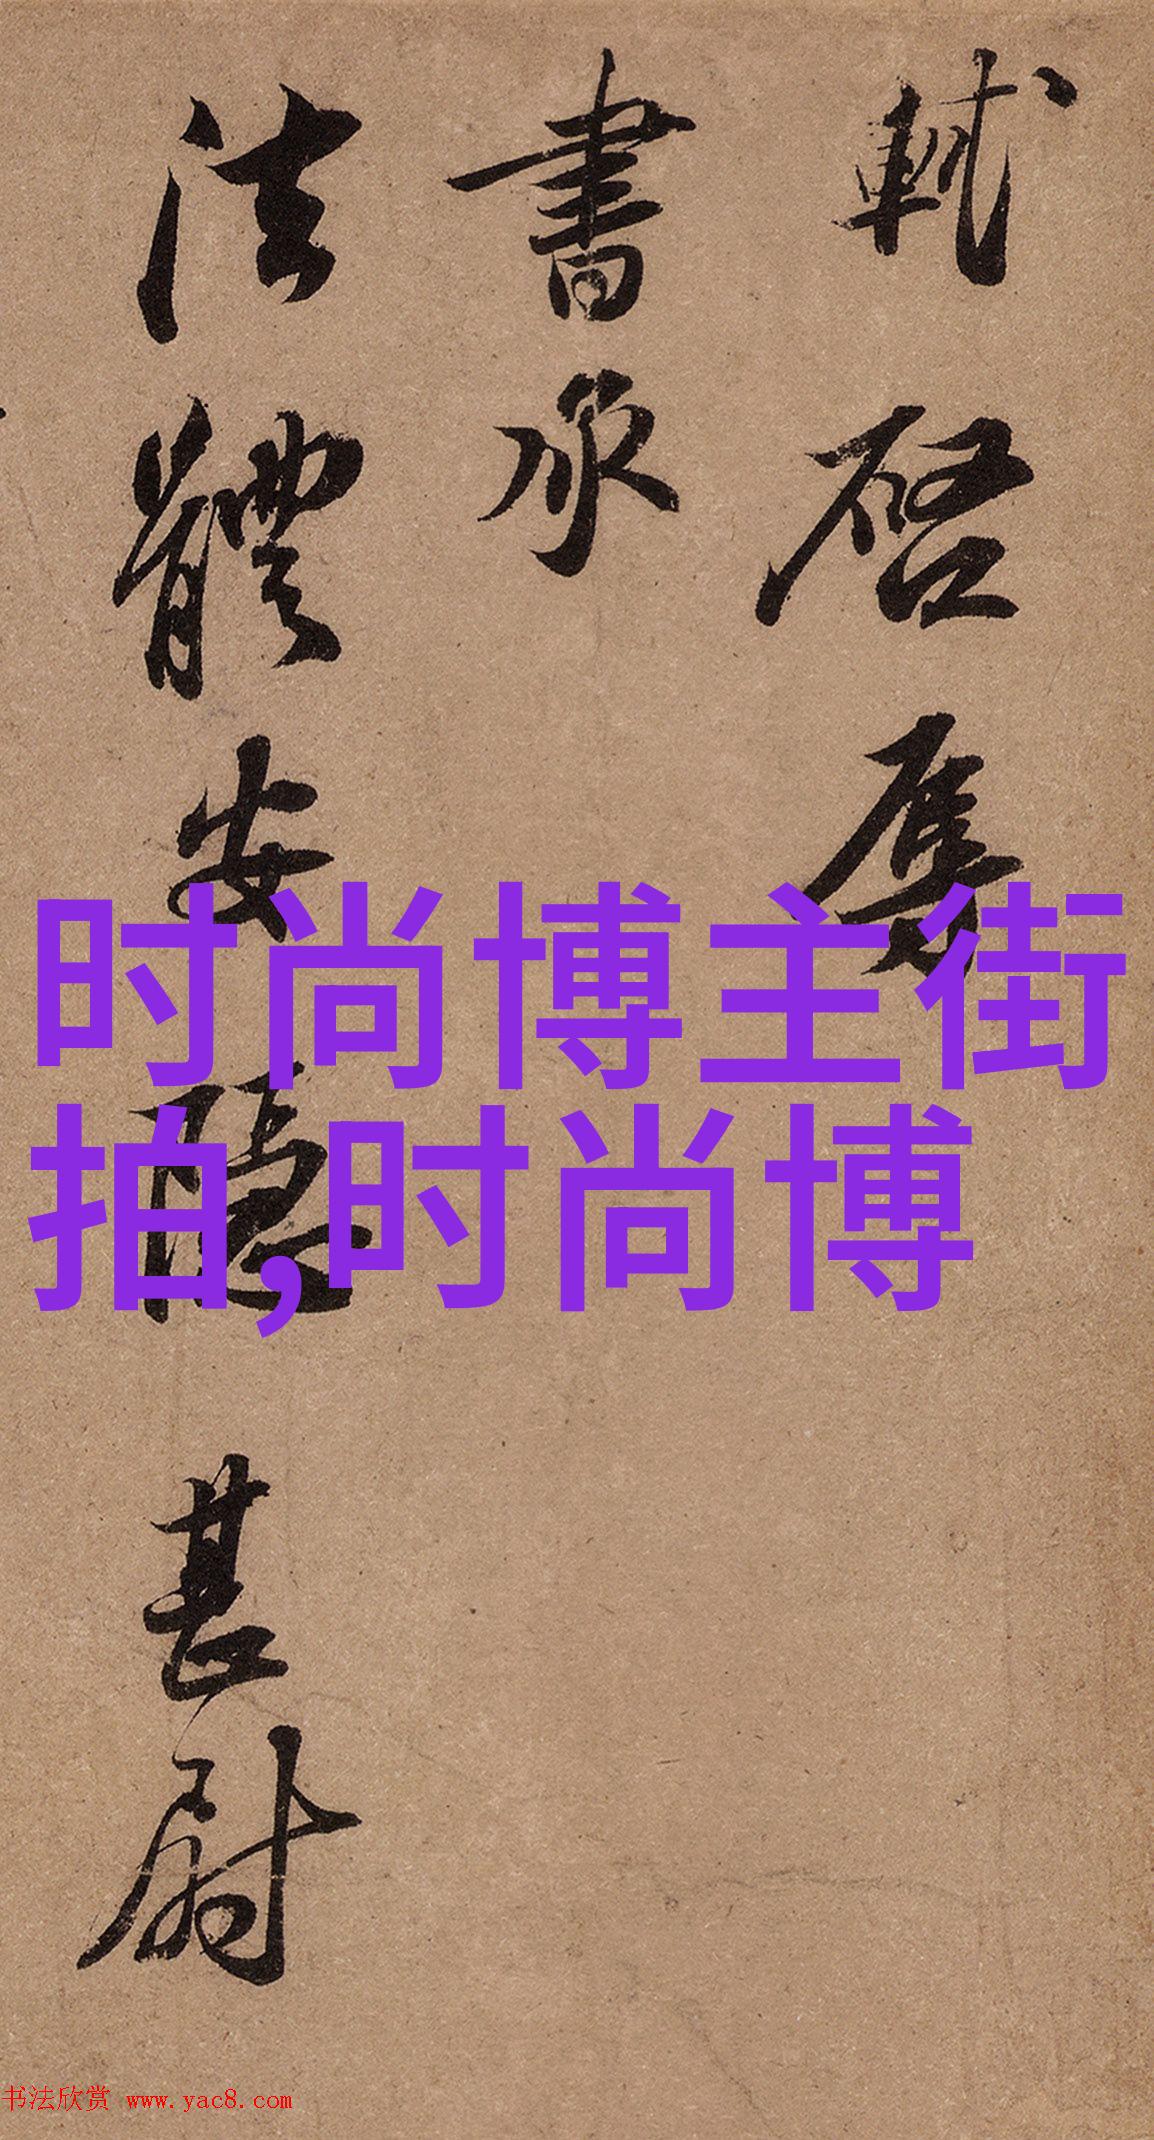 軾啓辱
書承
法體安隱甚尉
时尚博主街
拍,时尚博
书法欣赏 www.yac8.com